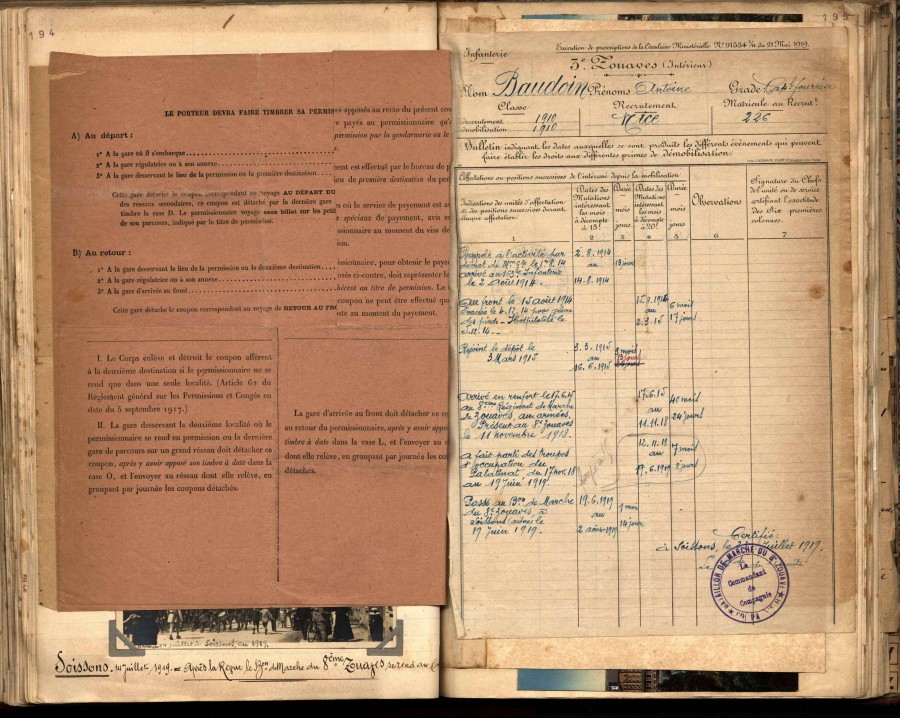 194
LE PORTEUR DEVRA FAIRE TIMBRER SA PERMIS
A) Au départ :
1° A la gare où il s'embarque
2° A la gare régulatrice ou à son annexe
3° A la gare desservant le lieu de la permission ou la première destination
Cette gare détache le coupon correspondant au voyage AU DÉPART DU
des réseaux secondaires, ce coupon est détaché par la dernière gare
timbre la case D. Le permissionnaire voyage sans billet sur les petit
de son parcours, indiqué par le titre de permission.
B) Au retour :
1° A la gare desservant le lieu de la permission ou la deuxième destination
2° A la gare régulatrice ou à son annexe
3° A la gare d'arrivée au front
Cette gare détache le coupon correspondant au voyage de RETOUR AU FRO
es apposés au recto du présent cou
n payés au permissionnaire qu'
permission par la gendarmerie ou le
ent est effectué par le bureau de p
on de première destination du per
n où le service de payement est a
s spéciaux de payement, avis e
sionnaire au moment du visa de
ion.
issionnaire, pour obtenir le paye
sés ci-contre, doit représenter le
hérent au titre de permission. Le
coupon ne peut être effectué qu
te au moment du payement.
I. Le Corps enlève et détruit le coupon afférent
à la deuxième destination si le permissionnaire ne se
rend que dans une seule localité. (Article 62 du
Règlement général sur les Permissions et Congés en
date du 5 septembre 1917.)
II. La gare desservant la deuxième localité où le
permissionnaire se rend en permission ou la dernière
gare de parcours sur un grand réseau doit détacher ce
coupon, après y avoir apposé son timbre à date dans la
case O, et l'envoyer au réseau dont elle relève, en
groupant par journée les coupons détachés.
La gare d'arrivée au front doit détacher ce co
au retour du permissionnaire, après y avoir appos
timbre à date dans la case L, et l'envoyer au r
dont elle relève, en groupant par journée les co
détachés.
14 juillet à Soissons en 1919.
Soissons. 14 juillet, 1919. = Après la Revue le Bon de Marche du 8ème Zouaves se rend au
195
Infanterie
Exécution de prescriptions de la Circulaire Ministérielle N° 91534 1/11 du 21 Mai 1919.
3e Zouaves (Intérieur)
Nom Baudoin Prénoms Antoine Grade Capal fourrier
Classe Recrutement Matricule au Recrutt
de recrutement 1910 Nice 226
de mobilisation 1910
Bulletin indiquant les dates auxquelles se sont produits les différents évènements qui peuvent
faire établir les droits aux différentes primes de démobilisation.
Affectations ou positions successives de l'intéressé depuis la mobilisation
Indications des unités d'affectation
et des positions successives durant
chaque affectation
Dates des
Mutations
intéressant
les mois
à décompte
à 15f
Durée
mois
jours
Dates des
Mutations
intéressant
les mois
à décompte
à 20f
Durée
mois
jours
Observations
Signature du Chef
de l'unité ou de service
certifiant l'exactitude
des Six premières
colonnes.
1 2 3 4 5 6 7
Rappelé à l'activité par 2-8-1914
décret de Mon Gle 1.8.14 au 13 jours
arrivé au 163e Infanterie
le 2 août 1914. 14-8-1914
Au front le 15 août 1914 15.8.1914 6 mois
évacué le 6.12.14 pour gelure au
des pieds - Hospitalisé le 2.3.15 17 jours
5.12.14
Rejoint le dépôt le 3-3-1915 3 mois
3 Mars 1915 au
16.6.1915
Arrivé en renfort le 17.6.15 17.6.15 40 mois
au 8ème Régiment de Marche au
de Zouaves, aux armées. 11.11.18 24 jours
Présent au 8e Zouaves
le 11 novembre 1918.
a fait parti des troupes 12.11.18 7 mois
d'occupation du au
Palatinat du 17 nov. 18 19.6.1919 8 jours
au 19 juin 1919.
Passé au Bon de Marche 19.6.1919 1 mois
du 8e Zouaves, à au
Soissons (aisne) le 2 août 1919 14 jours
19 Juin 1919.
Certifié
à Soissons, le Juillet 1919.
BATAILLON DE MARCHE DU 8e ZOUAVES
Le
Commandant
de
Compagnie